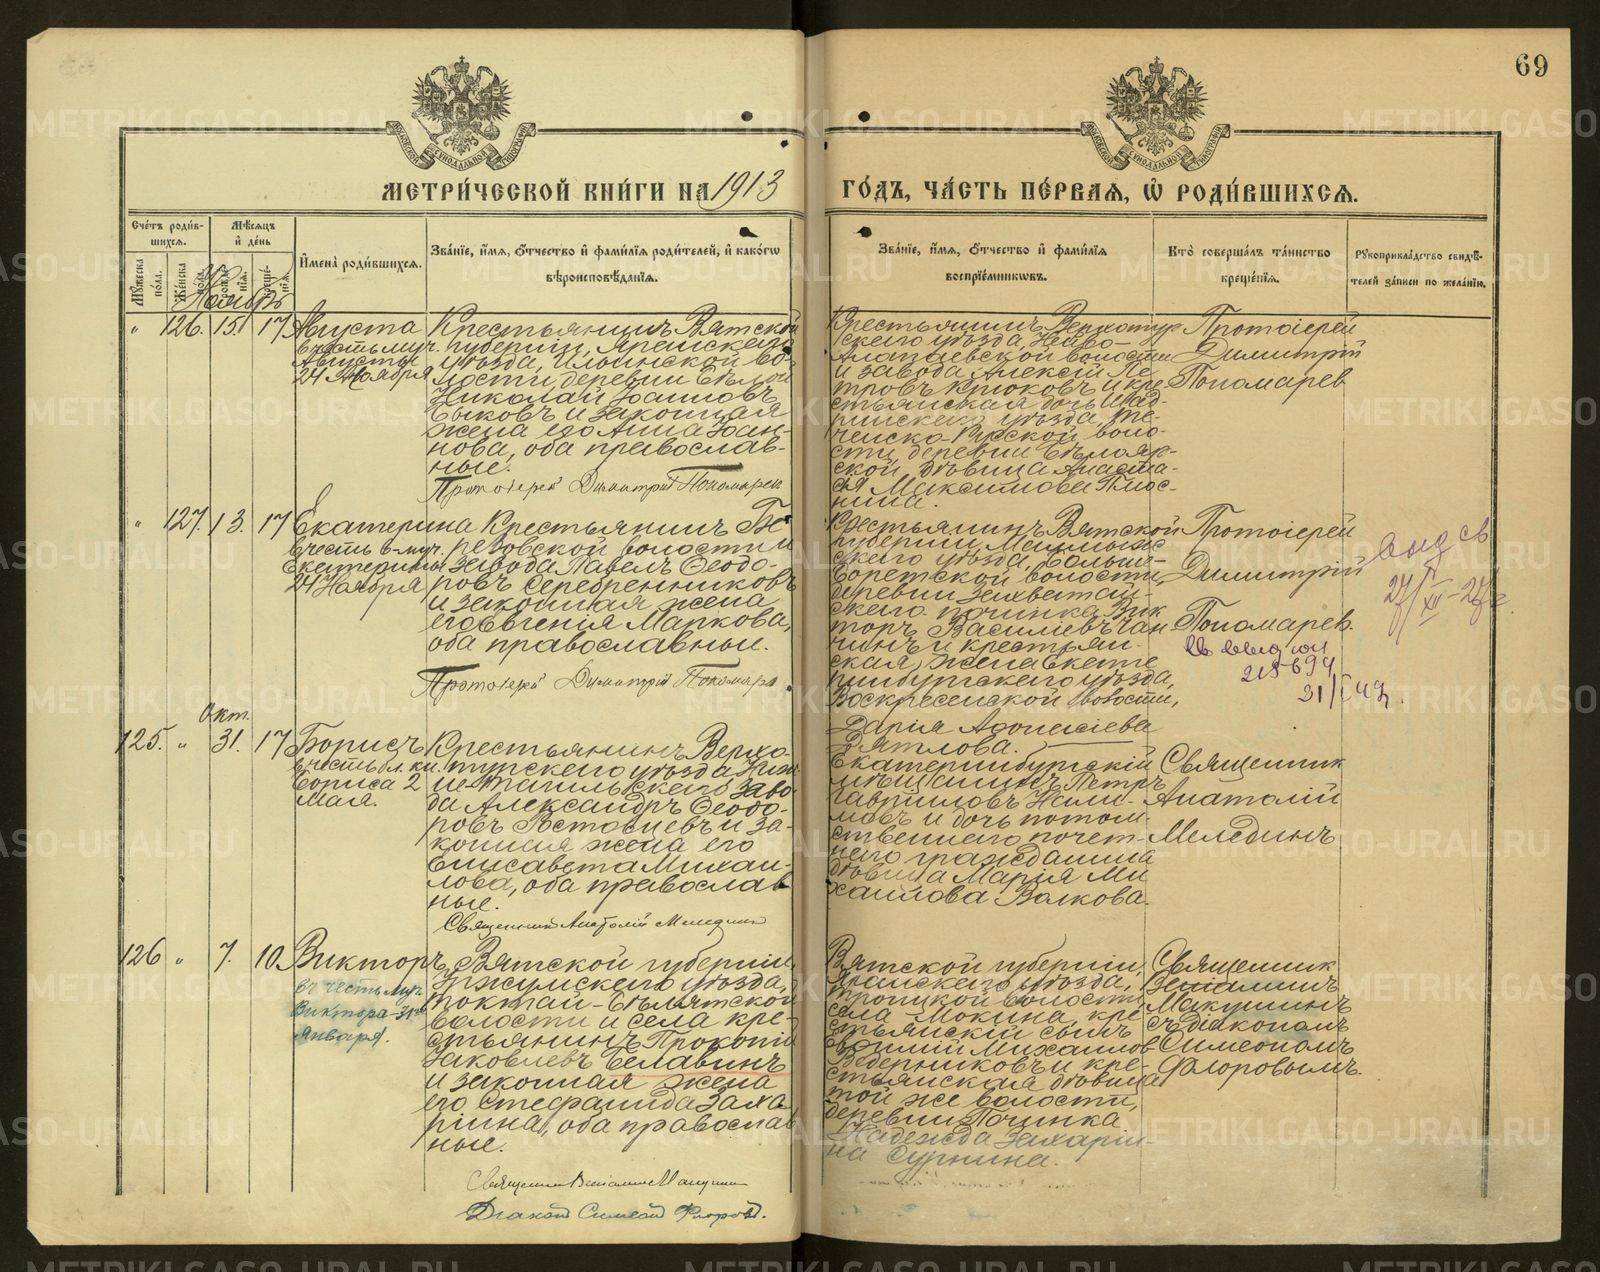 69
МЕТРИ́ЧЕСКОЙ КНИ́ГИ НА 1913 ГО́ДЪ, ЧА́СТЬ ПЕ́РВАЯ, Ѡ҆ РОДИ́ВШИХСЯ.
Сче́тъ роди́в-
шихся.
Мѣ́сяцъ
и҆ де́нь
И҆мена̀ роди́вшихся.
Зва́нїе, и҆́мя, ѻ҆́тчество и҆ фами́лїя роди́телей, и҆ како́гѡ
вѣроисповѣ́данїя.
Зва́нїе, и҆́мя, ѻ҆́тчество и҆ фами́лїя
воспрїе́мникѡвъ.
Кто̀ соверша́лъ та́инство
креще́нїя.
Рꙋкоприкла́дство свидѣ́-
телей за́писи по жела́нїю.
Ноябрь
„ 126. 15. 17
Августа
въ честь муч.
Августы
24 Ноября
Крестьянинъ Вятской
губернiи, Яренскаго
уѣзда, Ильинской во-
лости, деревни Бѣлой
Николай Iоанновъ
Быковъ и законная
жена его Анна Iоан-
нова, оба православ-
ные.
Протоiерей Димитрiй Пономарев
Крестьянинъ Верхотур
скаго уѣзда, Нейво-
Алапаевской волости
и завода Алексiй Пе-
тровъ Крюковъ и кре-
стьянская дочь Шад-
ринскаго уѣзда, Те-
ченско-Русской воло-
сти, деревни Бѣлояр-
ской, дѣвица Анаста-
сiя Максимова Плюс-
нина.
Протоiерей
Димитрiй
Пономарев
„ 127. 13. 17
Екатерина
въ честь в-муч.
Екатерины
24 Ноября
Крестьянинъ Бе-
резовской волости и
завода Павелъ Ѳеодо-
ровъ Серебренниковъ
и законная жена
его Евгенiя Маркова,
оба православные.
Протоiерей Димитрiй Пономарев
Крестьянинъ Вятской
губернiи, Малмыж-
скаго уѣзда, Больше-
деревни
скаго починка Вик
торъ Васильевъ Чан
чинъ и крестьян-
ская жена Екате
ринбургскаго уѣзда,
Воскресенской волости,
Дарiя Афонасiева
Пятлова.
Протоiерей
Димитрiй
Пономарев.
выд св
31/I 49
Окт.
125. „ 31. 17
Борисъ
въ честь бл. кн.
Бориса 2
Мая.
Крестьянинъ Верхо-
турскаго уѣзда Ниж-
не-Тагильскаго заво-
да Александръ Ѳеодо-
ровъ Ростовцевъ и за-
конная жена его
Елисавета Михаи-
лова, оба православ
ные.
Священник Анатолiй Мелединъ
Екатеринбургскiй
мѣщанинъ Петръ
Гавриловъ Нали-
мовъ и дочь потом-
ственнаго почет-
наго гражданина
дѣвица Марiя Ми
хаилова Волкова.
Священник
Анатолiй
Мелединъ
126 „ 7. 10.
Викторъ
въ честь муч.
Виктора-31го
января.
Вятской губернiи
Уржумскаго уѣзда,
Токтай-Бѣлятской
волости и села кре-
стьянинъ Прокопiй
Iаковлевъ Белавинъ
и законная жена
его Стефанида Заха
рiина, оба православ
ные.
Священник Венiамин Макушин
Дiакон Симеон Флоров.
Вятской губернiи,
Яранскаго уѣзда,
Троицкой волости
села Мокина, кре
стьянскiй сынъ
Василiй Михаилов
Ведерниковъ и кре-
стьянская дѣвица
той же волости,
деревни Починка
Надежда Захарiи-
на Сурнина.
Священник
Венiаминъ
Макушинъ
съ дiакономъ
Симеономъ
Флоровымъ.
METRIKI.GASO-URAL.RU